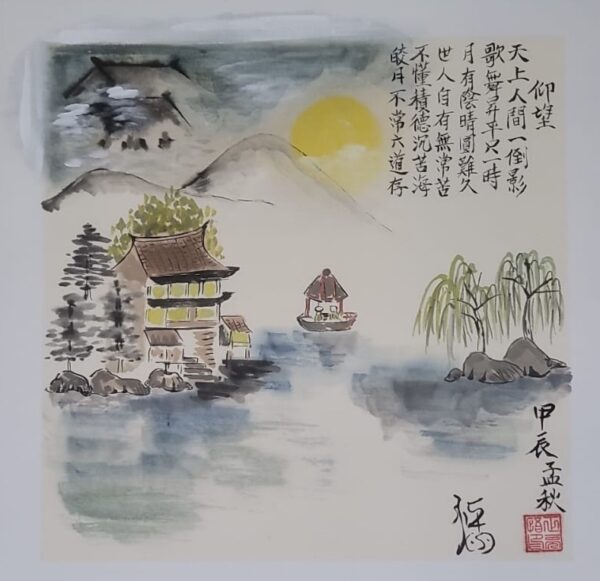 仰望
天上人間一倒影
歌舞昇平只一時
月有陰晴圓難久
世人自有無常苦
不懂積德沉苦海
皎月不常六道存
甲辰孟秋